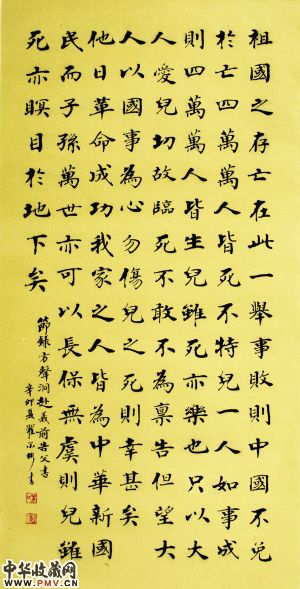 祖國之存亡在此一舉事敗則中國不免
於亡四萬萬人皆死不特兒一人如事成
則四萬萬人皆生兒雖死亦樂也只以大
人愛兒切故臨死不敢不為稟告但望大
人以國事為心勿傷兒之死則幸甚矣
他日革命成功我家之人皆為中華新國
民而子孫萬世亦可以長保無虞則兒雖
死亦瞑目於地下矣
節錄方聲洞赴義前告父書
辛卯夏 書
中华收藏网
www.PMV.cn